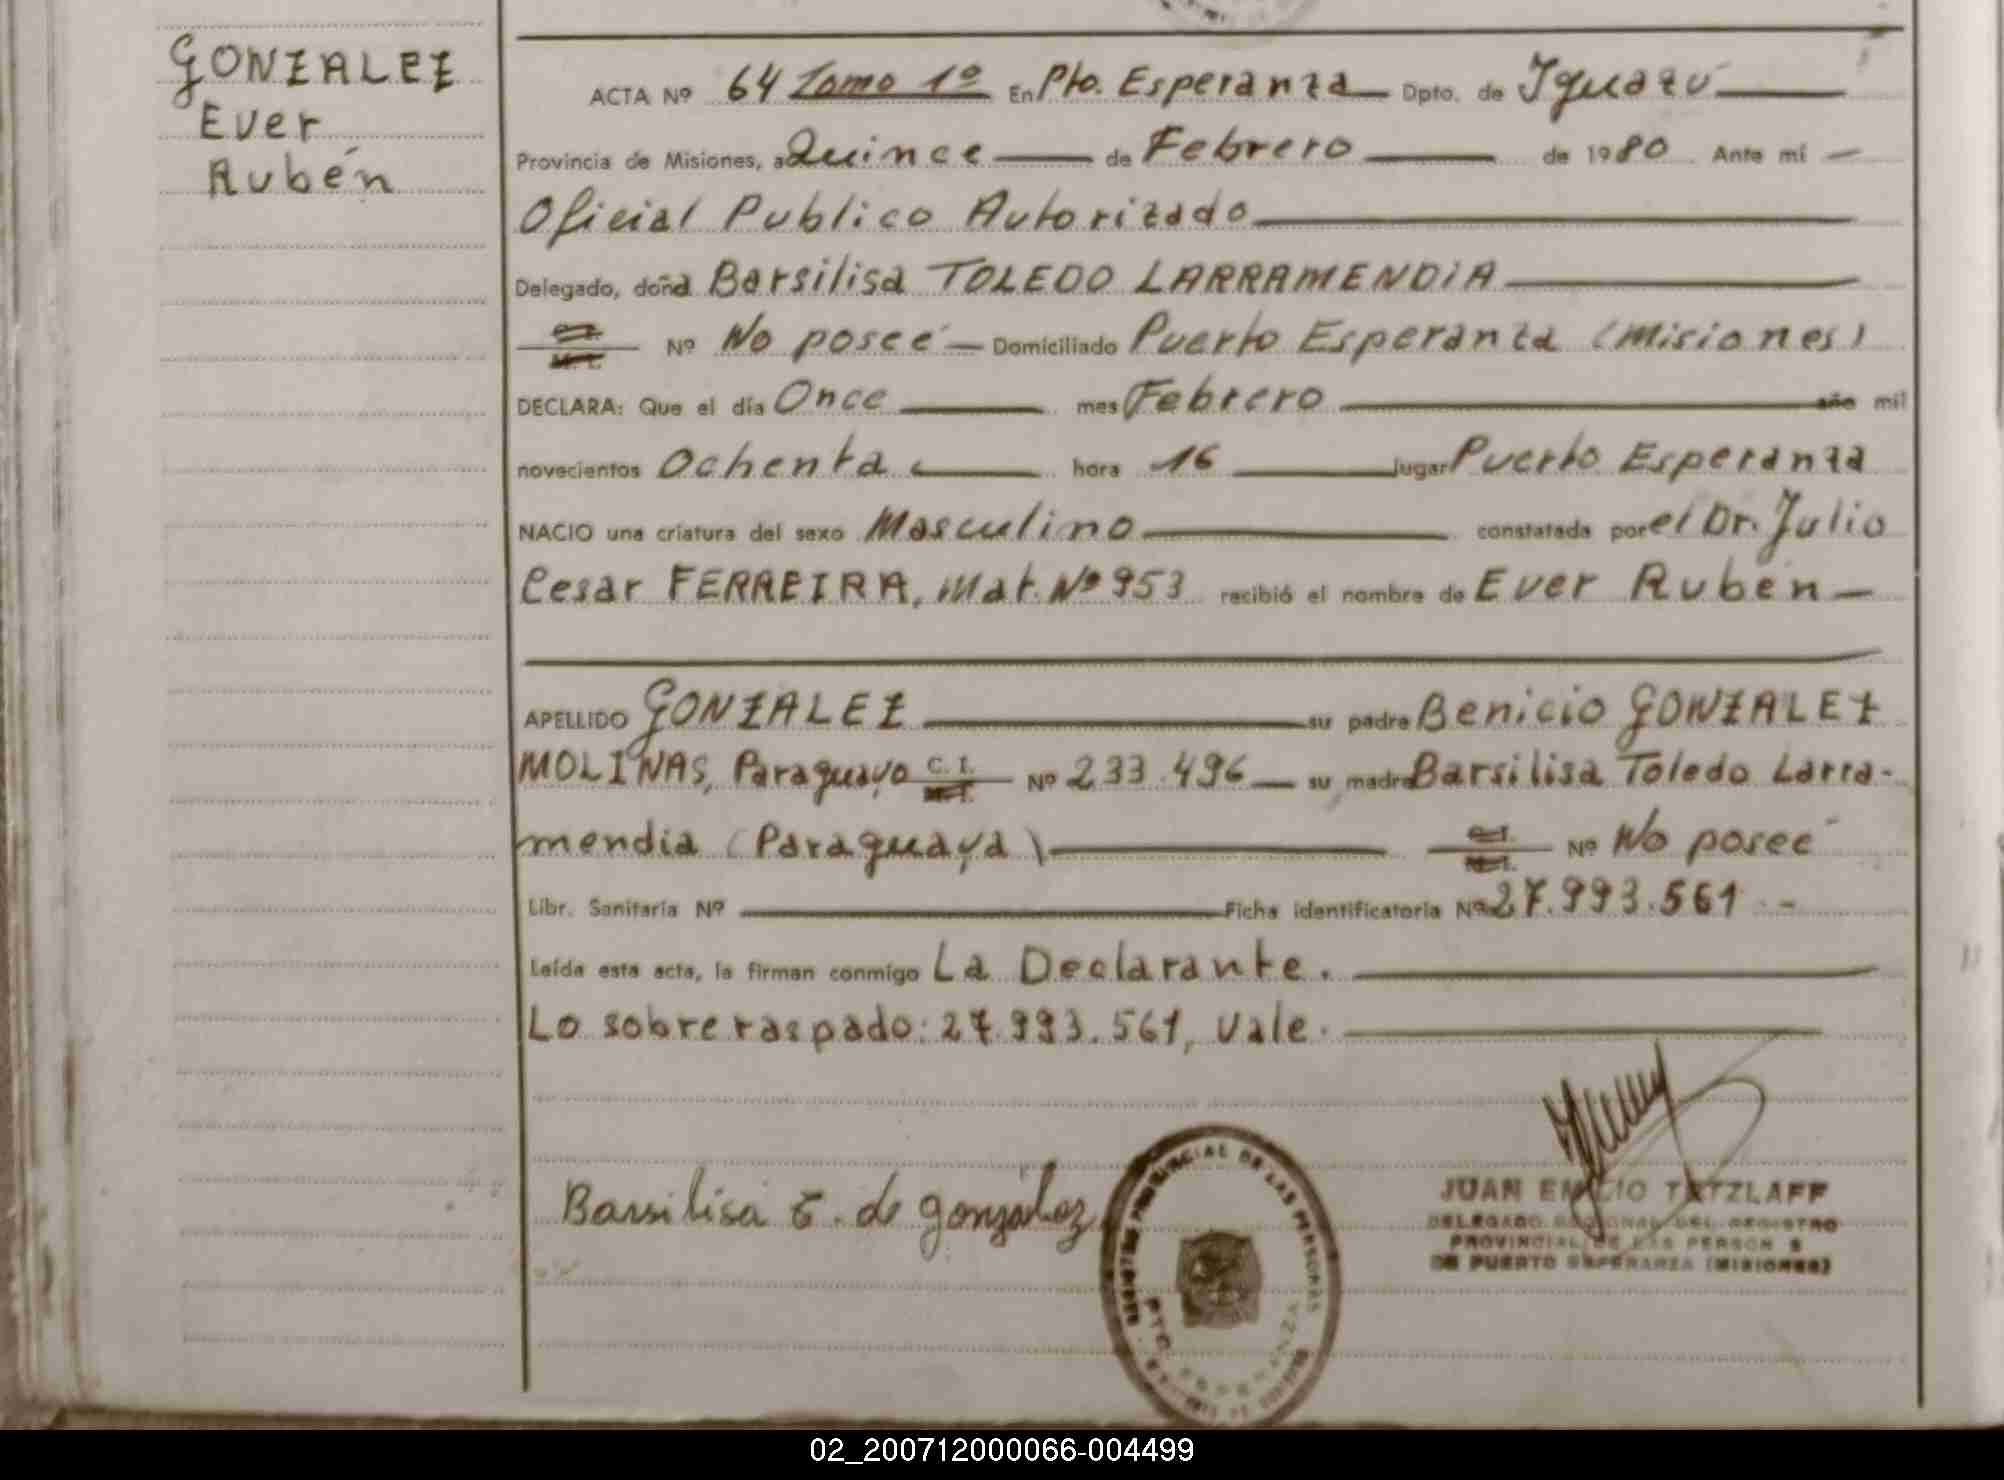 GONZALEZ
Ever
Rubén
ACTA Nº 64 Tomo 1º En Pto. Esperanza Dpto. de Iguazú
Provincia de Misiones, a Quince de Febrero de 1980 Ante mí
Oficial Publico Autorizado
Delegado, doña Barsilisa TOLEDO LARRAMENDIA
C.I. M.I. Nº No poseé Domiciliado Puerto Esperanza (Misiones)
DECLARA: Que el día Once mes Febrero año mil
novecientos Ochenta hora 16 lugar Puerto Esperanza
NACIO una criatura del sexo Masculino constatada por el Dr. Julio
Cesar FERREIRA, Mat. Nº 953 recibió el nombre de Ever Rubén
APELLIDO GONZALEZ su padre Benicio GONZALEZ
MOLINAS, Paraguayo C.I. M.I. Nº 233.496 su madre Barsilisa Toledo Larra-
mendia (Paraguaya) C.I. M.I. Nº No poseé
Libr. Sanitaria Nº Ficha identificatoria Nº 27.993.561.-
Leída esta acta, la firman conmigo La Declarante.
Lo sobreraspado: 27.993.561, Vale.
Barsilisa T. de González
REGISTRO PROVINCIAL DE LAS PERSONAS
PTO. ESPERANZA
JUAN EMILIO TETZLAFF
DELEGADO REGIONAL DEL REGISTRO
PROVINCIAL DE LAS PERSONAS
DE PUERTO ESPERANZA (MISIONES)
02_200712000066-004499